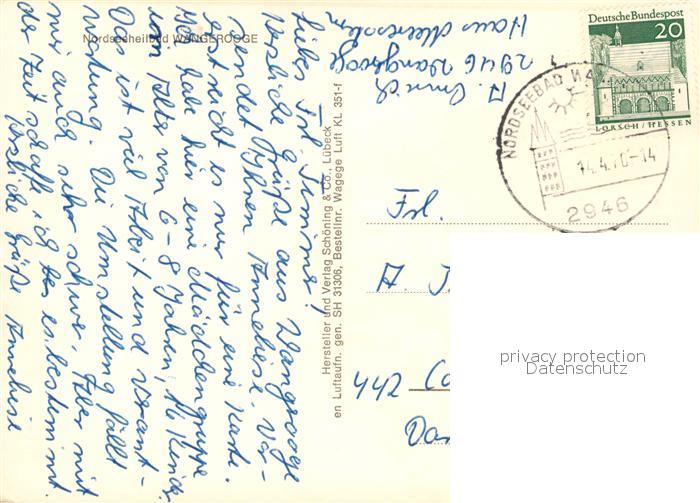 Nordseeheilbad WANGEROOGE
Liebes Frl. Timme!
Herzliche Grüße aus Wangerooge
sendet Ihnen Anneliese. Vor-
erst reicht es nur für eine Karte.
Ich habe hier eine Mädchengruppe
vom Alter von 6-8 Jahren, 16 Kinder.
Das ist viel Arbeit und verant-
wortung. Die Umstellung fällt
mir auch sehr schwer. Aber mit
der Zeit schaffe ich es bestimmt.
Herzliche Grüße Anneliese
Hersteller und Verlag Schöning & Co., Lübeck
en Luftaufn. gen. SH 31306, Bestellnr. Wagege Luft KL 351-f
A.
2946 Wangerooge
Haus Meeresstern
Deutsche Bundespost
20
LORSCH/HESSEN
NORDSEEBAD WA
14.4.70-14
2946
Frl.
A. T
442 Co
Da
privacy protection
Datenschutz